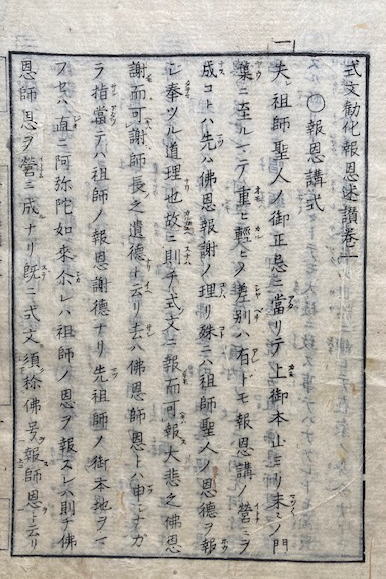 式文勧化報恩述讃巻二
〇報恩講式
一夫レ祖師聖人ノ御正忌ニ當リテ上御本山ヨリ末々ノ門
葉ニ至ルマテ重ヒ輕ヒノ差別ハ有レドモ報恩講ノ營ミヲ
成コトハ先ハ佛恩報謝ノ理リ殊ニハ祖師聖人ノ恩德ヲ報
シ奉ツル道理也故ニ則チ式文ニ報而可報大悲之佛恩
謝而可謝師長之遺德ト云リ去ハ佛恩師恩トハ申シナガ
ラ指當テハ祖師ノ報恩謝德ナリ先祖師ノ御本地ヲ云
フセハ直ニ阿弥陀如來
レハ祖師ノ恩ヲ報スレハ則チ佛
恩師恩ヲ營ミ成ナリ既ニ式文須称佛号報師恩ト云リ